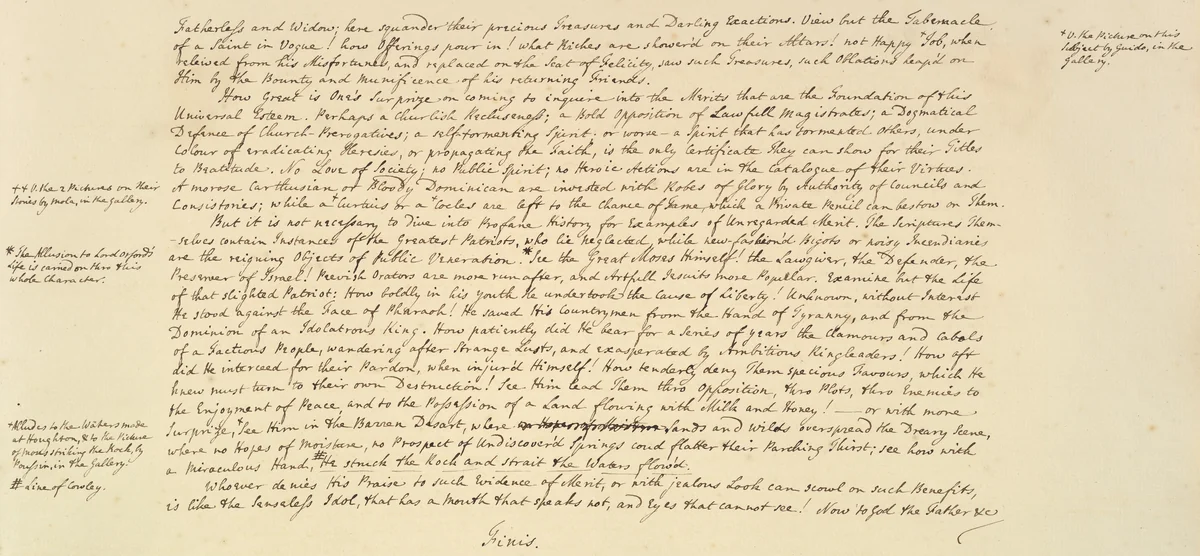 Fatherless and Widow; here squander their precious Treasures and Darling Exactions. View but the Tabernacle
of a Saint in Vogue! how Offerings pour in! what Riches are shower'd on their Altars! not Happy + Job, when
releived from his Misfortunes, and replaced on the Seat of Felicity, saw such Treasures, such Oblations heap'd on
Him by the Bounty and Munificence of his returning Friends.
+ V. the Picture on this
Subject by Guido, in the
Gallery.
How Great is One's Surprize on coming to enquire into the Merits that are the Foundation of this
Universal Esteem. Perhaps a Churlish Recluseness; a Bold Opposition of Lawfull Magistrates; a Dogmatical
Defiance of Church-Prerogatives; a self-tormenting Spirit; or worse - a Spirit that has tormented others, under
Colour of eradicating Heresies, or propagating the Faith, is the only Certificate They can show for their Titles
to Beatitude. No Love of Society; no Public Spirit; no Heroic Actions are in the Catalogue of their Virtues.
A morose Carthusian, or Bloody Dominican are invested with Robes of Glory by Authority of Councils and
Consistories; while a + Curtius or a + Cocles are left to the Chance of Fame, which a Private Pencil can bestow on Them.
++ V. the 2 Pictures on their
Stories by Mola, in the Gallery.
But it is not necessary to Dive into Profane History for Examples of Unregarded Merit. The Scriptures Them-
-selves contain Instances of the Greatest Patriots, who lie neglected, while new-fashion'd Bigots or noisy Incendiaries
are the reigning Objects of Public Veneration. * See the Great Moses Himself! the Lawgiver, the Defender, the
Preserver of Israel! Peevish Orators are more run after, and Artfull Jesuits more Popular. Examine but the Life
of that slighted Patriot: How boldly in his youth He undertook the Cause of Liberty! Unknown, without Interest
He stood against the Face of Pharaoh! He saved His Countrymen from the Hand of Tyranny, and from the
Dominion of an Idolatrous King. How patiently did He bear for a series of years the Clamours and Cabals
of a Factious People, wandering after Strange Lusts, and exasperated by Ambitious Ringleaders! How oft
did He intercede for their Pardon, when injur'd Himself! How tenderly deny Them specious Favours, which He
knew must turn to their own Destruction! See Him lead Them thro Opposition, thro Plots, thro Enemies to
the Enjoyment of Peace, and to the Possession of a Land flowing with Milk and Honey! — or with more
Surprize, + see Him in the Barren Desart, where Sands and wilds overspread the Dreary Scene,
where no Hopes of Moisture, no Prospect of Undiscover'd Springs coud flatter their Parching Thirst; see how with
a Miraculous Hand, # He struck the Rock and strait the Waters flow'd.
* The Allusion to Lord Orford's
Life is carried on thro this
whole Character.
+ Alludes to the Waters made
at Houghton, & to the Picture
of Moses striking the Rock, by
Poussin, in the Gallery.
# a line of Cowley.
Whoever denies His Praise to such Evidence of Merit, or with jealous Look can scowl on such Benefits,
is like the senseless Idol, that has a Mouth that speaks not, and Eyes that cannot see! Now to God the Father &c
Finis.